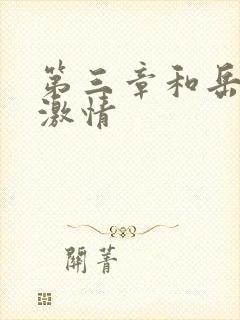 第三章和岳
激情
關菁